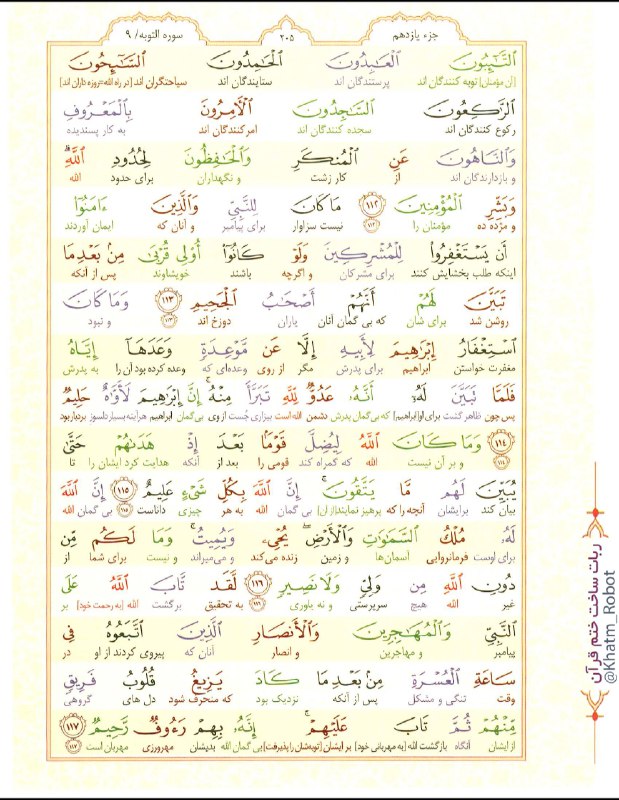 جزء یازدهم
۲۰۵
سوره التوبه/ ۹
ٱلتَّـٰٓئِبُونَ ٱلْعَـٰبِدُونَ ٱلْحَـٰمِدُونَ ٱلسَّـٰٓئِحُونَ
[آن مؤمنان] توبه کنندگان اند پرستندگان اند ستایندگان اند سیاحتگران اند [در راه الله=روزه داران اند]
ٱلرَّٰكِعُونَ ٱلسَّـٰجِدُونَ ٱلْـَٔامِرُونَ بِٱلْمَعْرُوفِ
رکوع کنندگان اند سجده کنندگان اند امرکنندگان اند به کار پسندیده
وَٱلنَّاهُونَ عَنِ ٱلْمُنكَرِ وَٱلْحَـٰفِظُونَ لِحُدُودِ ٱللَّهِ ۗ
و بازدارندگان اند از کار زشت و نگهداران برای حدود الله
وَبَشِّرِ ٱلْمُؤْمِنِينَ ۝١١٢ مَا كَانَ لِلنَّبِىِّ وَٱلَّذِينَ ءَامَنُوٓا۟
و مژده ده مؤمنان را ۱۱۲ نیست سزاوار برای پیامبر و آنان که ایمان آوردند
أَن يَسْتَغْفِرُوا۟ لِلْمُشْرِكِينَ وَلَوْ كَانُوٓا۟ أُو۟لِى قُرْبَىٰ مِنۢ بَعْدِ مَا
اینکه طلب بخشایش کنند برای مشرکان و اگرچه باشند خویشاوند پس از آنکه
تَبَيَّنَ لَهُمْ أَنَّهُمْ أَصْحَـٰبُ ٱلْجَحِيمِ ۝١١٣ وَمَا كَانَ
روشن شد برای شان که بی گمان آنان یاران دوزخ اند ۱۱۳ و نبود
ٱسْتِغْفَارُ إِبْرَٰهِيمَ لِأَبِيهِ إِلَّا عَن مَّوْعِدَةٍ وَعَدَهَآ إِيَّاهُ
مغفرت خواستن ابراهیم برای پدرش مگر از روی وعده‌ای که وعده کرده بود آن را به پدرش
فَلَمَّا تَبَيَّنَ لَهُۥٓ أَنَّهُۥ عَدُوٌّ لِّلَّهِ تَبَرَّأَ مِنْهُ ۚ إِنَّ إِبْرَٰهِيمَ لَأَوَّٰهٌ حَلِيمٌ
پس چون ظاهر گشت برای او[ابراهیم] که بی‌گمان پدرش دشمن الله است بیزاری جُست از وی بی‌گمان ابراهیم هرآینه بسیار دلسوز بردبار بود
۝١١٤ وَمَا كَانَ ٱللَّهُ لِيُضِلَّ قَوْمًۢا بَعْدَ إِذْ هَدَىٰهُمْ حَتَّىٰ
۱۱۴ و بر آن نیست الله که گمراه کند قومی را بعد از آنکه هدایت کرد ایشان را تا
يُبَيِّنَ لَهُم مَّا يَتَّقُونَ ۚ إِنَّ ٱللَّهَ بِكُلِّ شَىْءٍ عَلِيمٌ ۝١١٥ إِنَّ ٱللَّهَ
بیان کند برایشان آنچه را که پرهیز نمایند[از آن] بی گمان الله به هر چیزی داناست ۱۱۵ بی گمان الله
لَهُۥ مُلْكُ ٱلسَّمَـٰوَٰتِ وَٱلْأَرْضِ ۖ يُحْىِۦ وَيُمِيتُ ۚ وَمَا لَكُم مِّن
برای اوست فرمانروایی آسمان‌ها و زمین زنده می‌کند و می‌میراند و نیست برای شما از
دُونِ ٱللَّهِ مِن وَلِىٍّ وَلَا نَصِيرٍ ۝١١٦ لَّقَد تَّابَ ٱللَّهُ عَلَى
غیر الله هیچ سرپرستی و نه یاوری ۱۱۶ به تحقیق برگشت الله [به رحمت خود] بر
ٱلنَّبِىِّ وَٱلْمُهَـٰجِرِينَ وَٱلْأَنصَارِ ٱلَّذِينَ ٱتَّبَعُوهُ فِى
پیامبر و مهاجرین و انصار آنان که پیروی کردند از او در
سَاعَةِ ٱلْعُسْرَةِ مِنۢ بَعْدِ مَا كَادَ يَزِيغُ قُلُوبُ فَرِيقٍ
وقت تنگی و مشکل پس از آنکه نزدیک بود که منحرف شود دل های گروهی
مِّنْهُمْ ثُمَّ تَابَ عَلَيْهِمْ ۚ إِنَّهُۥ بِهِمْ رَءُوفٌ رَّحِيمٌ ۝١١٧
از ایشان آنگاه بازگشت الله [به مهربانی خود] بر ایشان [توبه‌شان را پذیرفت] بی گمان الله بدیشان مهرورزی مهربان است ۱۱۷
ربات ساخت ختم قرآن
@Khatm_Robot